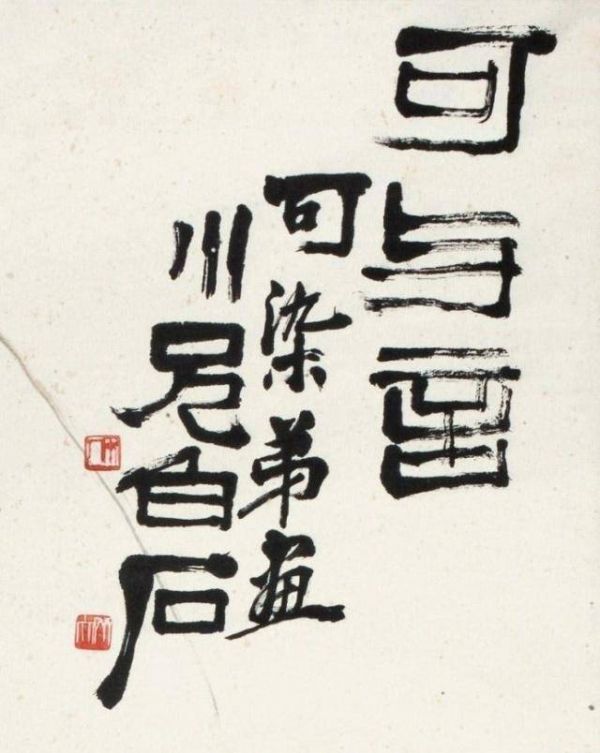 可与言
可染弟画
小兄白石